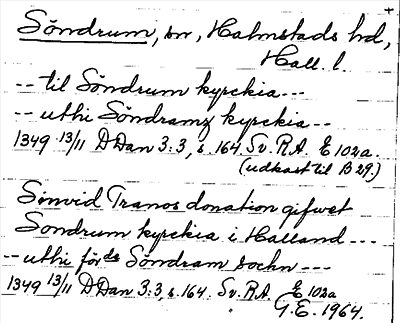 Söndrum, sn, Halmstads hd,
Hall. l.
-- til Söndrum kyrckia ---
-- uthi Söndramz kyrckia --
1349 13/11 DDan 3:3, s. 164. Sv. R.A. E 102a.
(udkast til B 29.)
Sinvid Tranos donation gifwet
Sondrum kyrckia i Halland ---
-- uthi förde Söndram sochn ---
1349 13/11 DDan 3:3, s. 164. Sv. R.A. E 102a
G.E. 1964.